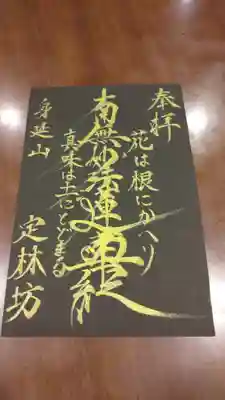 奉拝
花は根にかへり
南無妙法蓮華経
真味は土にとどまる
身延山
定林坊